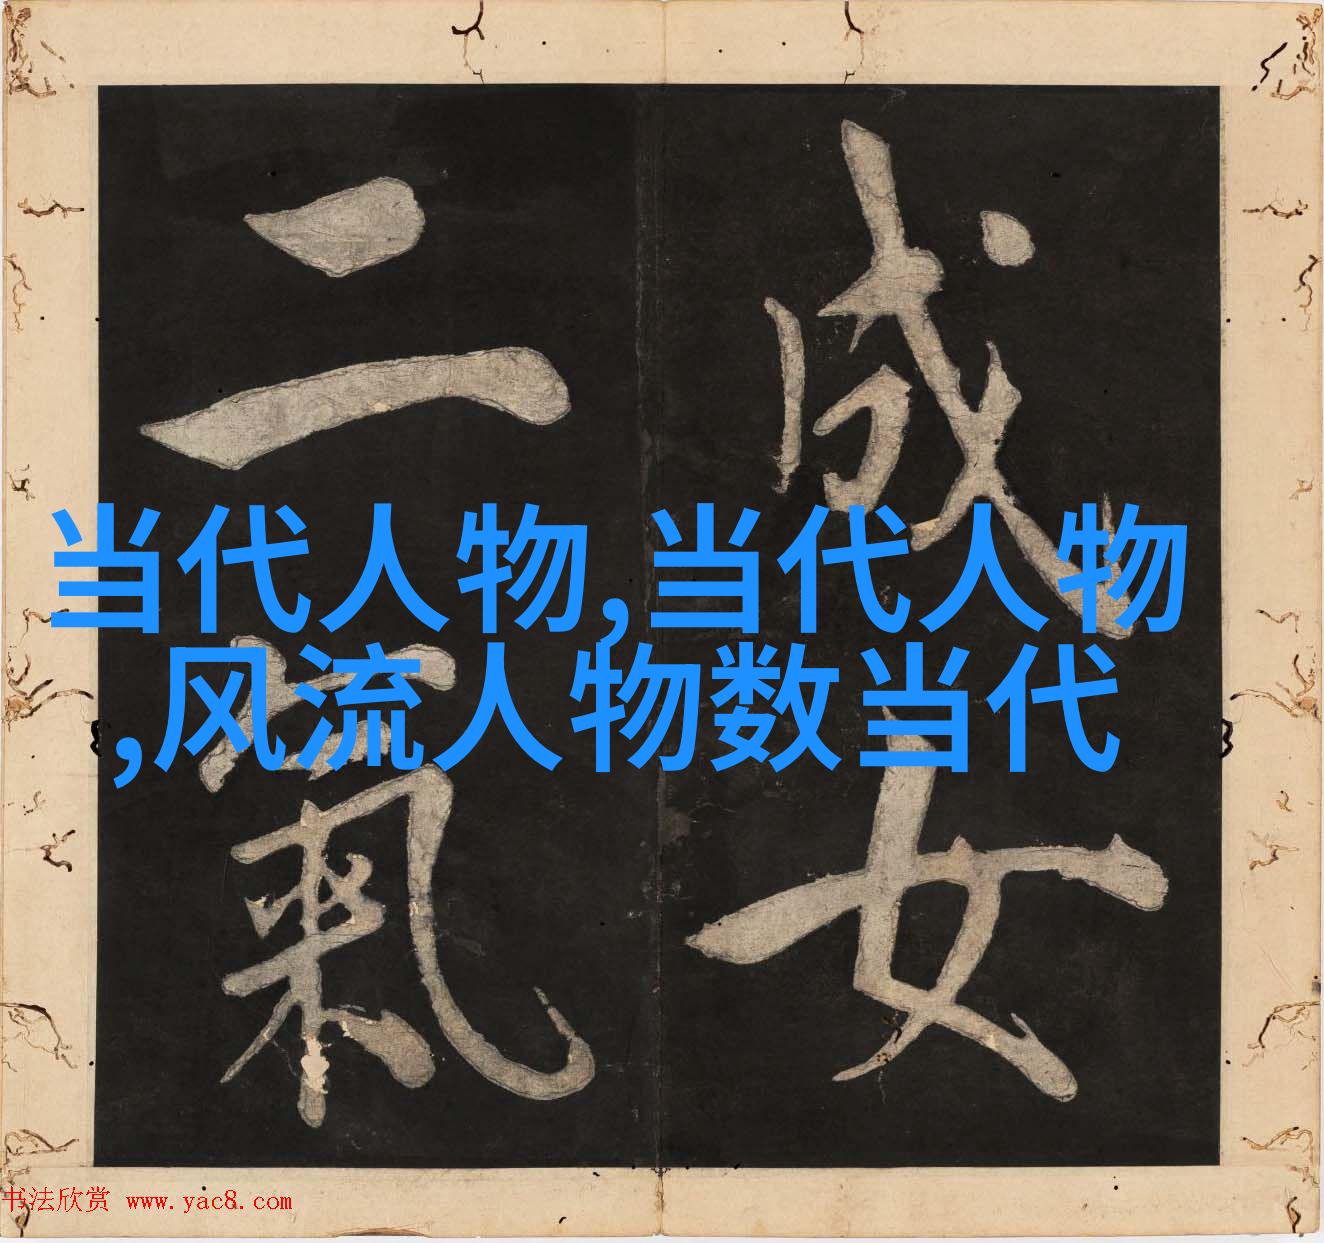 成女
二氣
当代人物,当代人物
,风流人物数当代
书法欣赏 www.yac8.com